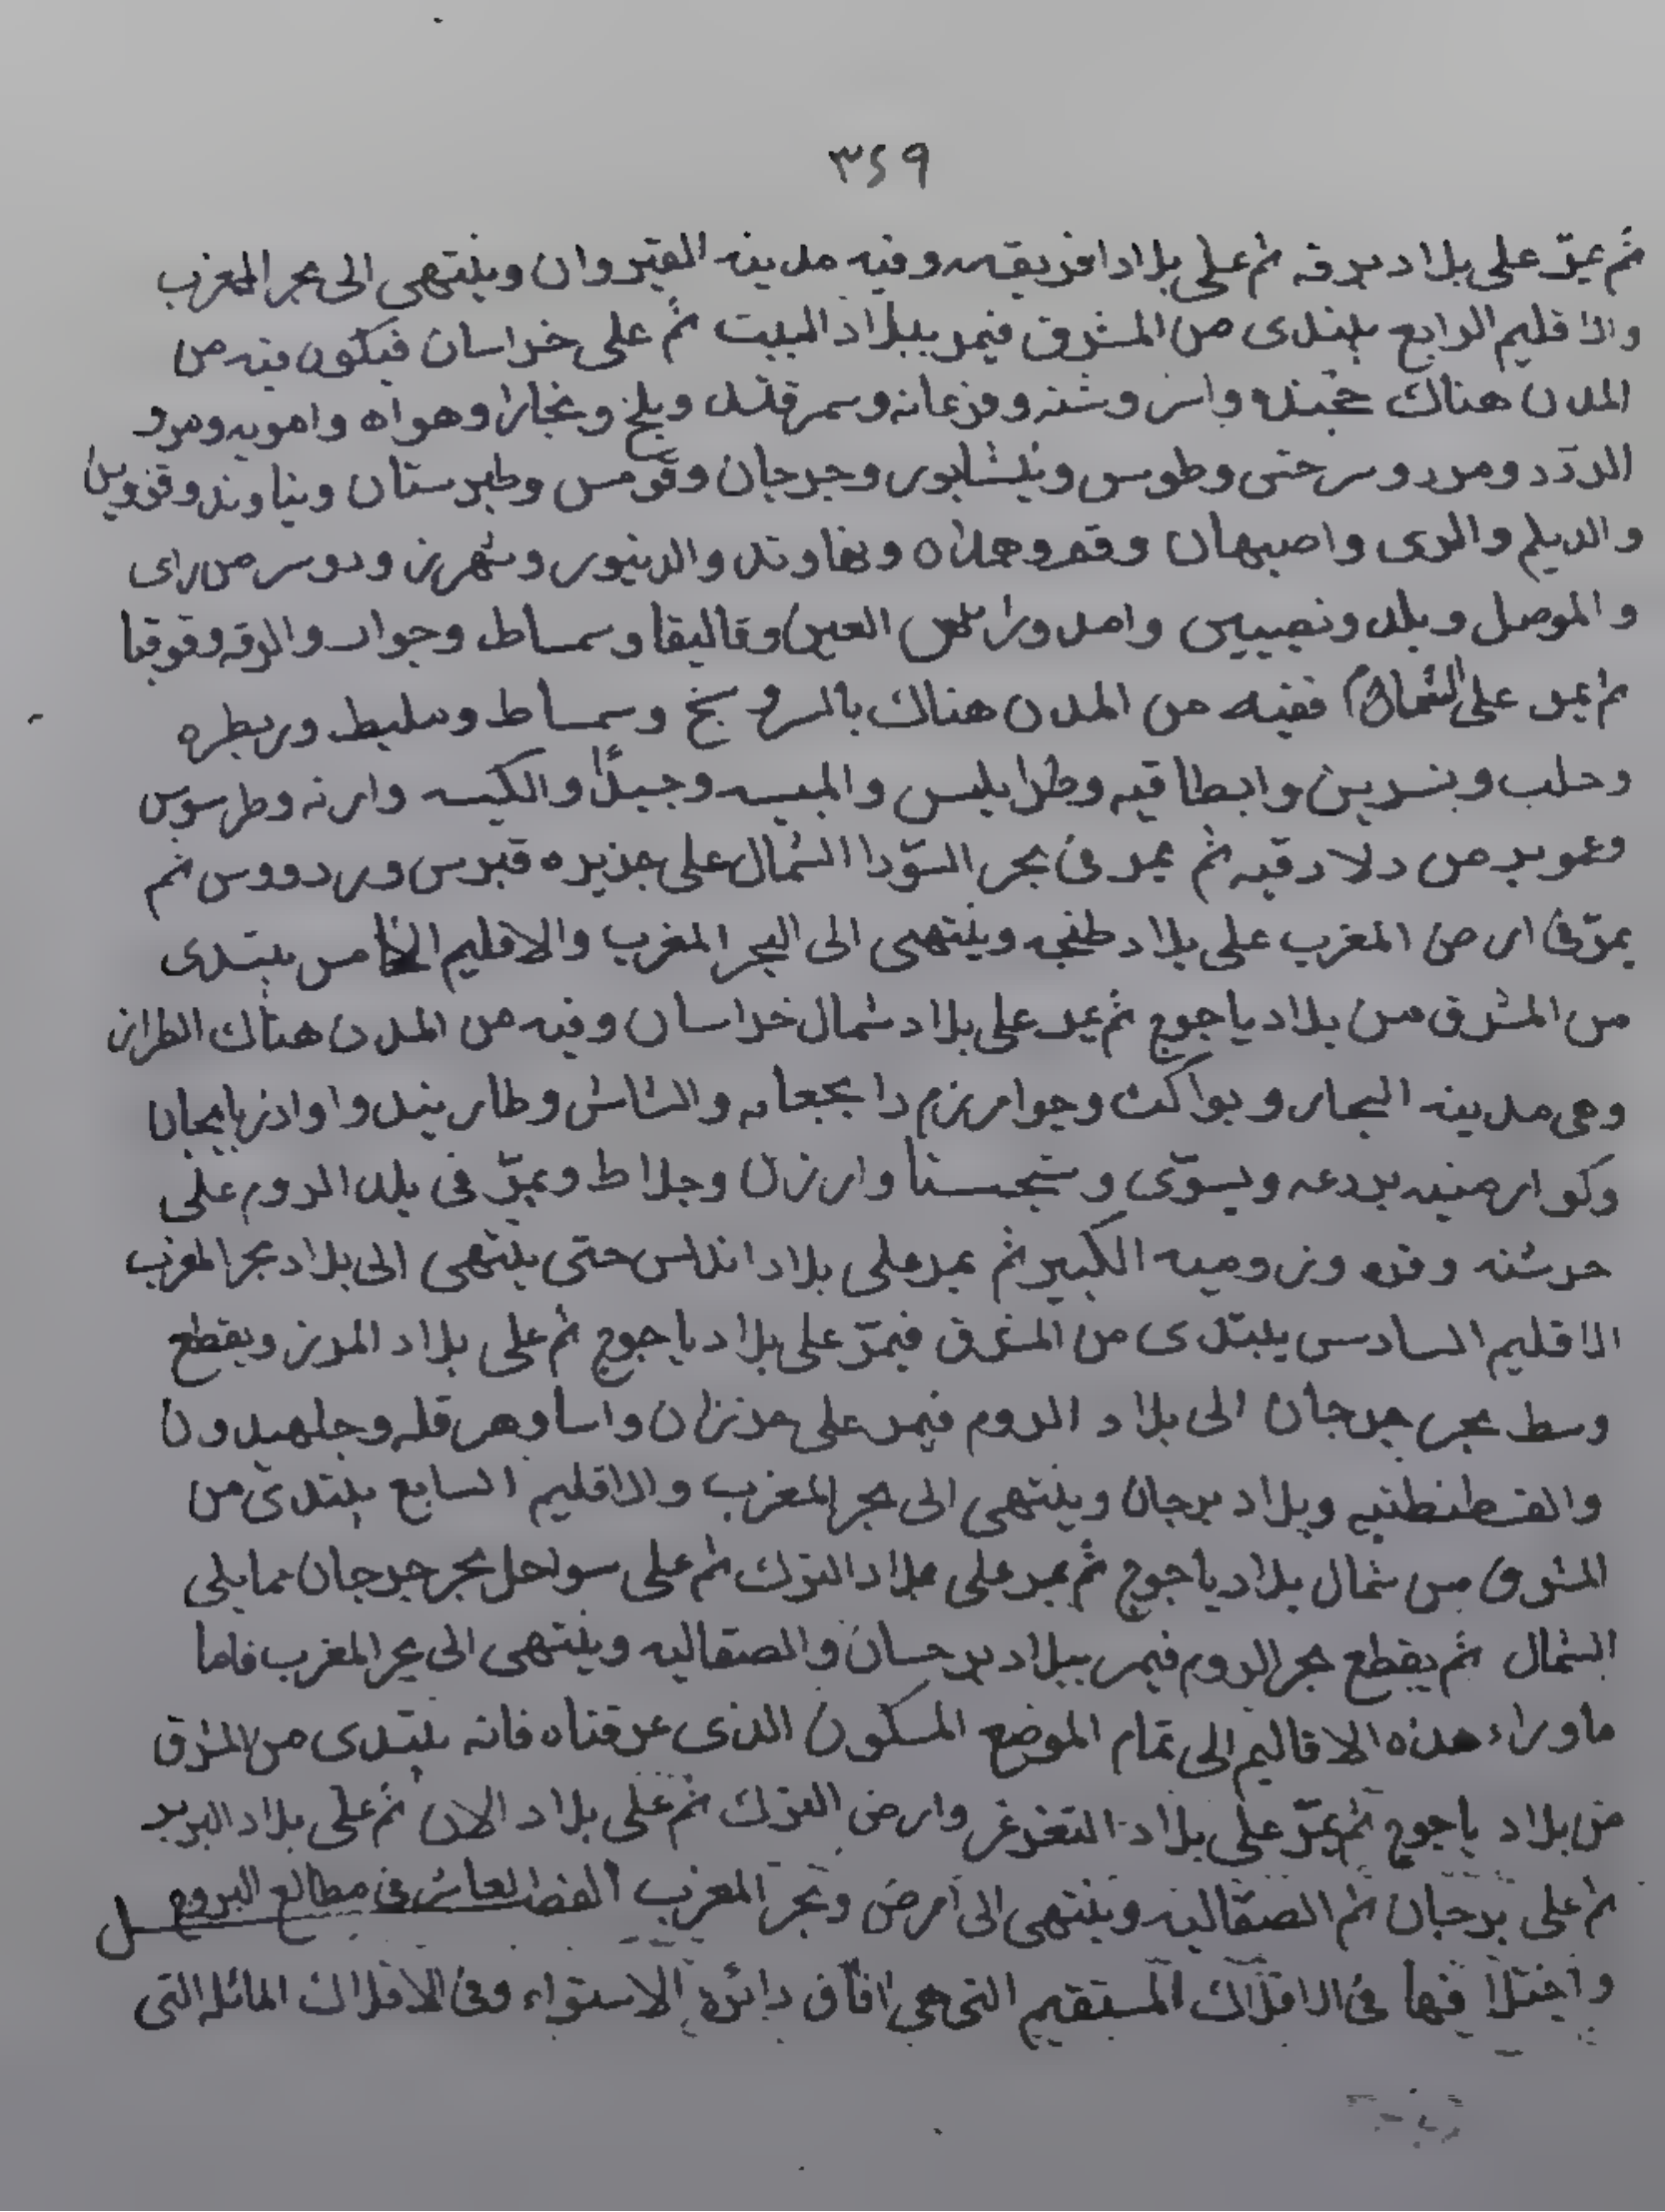 ٣٤٩
ثم يمرّ على بلاد برقه ثم على بلاد افريقيه وفيه مدينه القيروان وينتهى الى بحر المغرب
والاقليم الرابع يبتدى من المشرق فيمر ببلاد التبت ثم على خراسان فيكون فيه من
المدن هناك خجنده واسروشنه وفرغانه وسمرقند وبلخ وبخارا وهراه وامويه ومرو
الرود ومرو وسرخس وطوس ونيشابور وجرجان وقومس وطبرستان ودنباوند وقزوين
والديلم والرى واصبهان وقم وهمدان ونهاوند والدينور وشهرز وسر من راى
والموصل وبلد ونصيبين وامد وراس العين وقاليقا وسمساط والرقه وقرقيا
ثم يمر على الشمال ففيه من المدن هناك وسمساط وملطيه
وحلب وقنسرين وانطاقيه وطرابلس وطرسوس
ثم يمر فى بحر الشمال على جزيره قبرس وردووس ثم
يمرّ فى ارض المغرب على بلاد طنجه وينتهى الى البحر المغرب والاقليم الخامس يبتدى
من المشرق من بلاد ياجوج ثم يمر على بلاد شمال خراسان وفيه من المدن هناك الطراز
وهى مدينه التجار ونواكث وخوارزم والشاش وطاربند واذربايجان
وكور ارمينيه بردعه وارزن وخلاط ويمرّ فى بلد الروم على
خرشنه وقره وروميه الكبير ثم يمر على بلاد اندلس حتى ينتهى الى بلاد بحر المغرب
الاقليم السادس يبتدى من المشرق فيمرّ على بلاد ياجوج ثم على بلاد الخزر ويقطع
وسط بحر جرجان الى بلاد الروم فيمر على خزران واماسا وهرقله وخلقيدون
والقسطنطنيه وبلاد برجان وينتهى الى بحر المغرب والاقليم السابع يبتدى من
المشرق من شمال بلاد ياجوج ثم يمر على بلاد الترك ثم على سواحل بحر جرجان مما يلى
الشمال ثم يقطع بحر الروم فيمر ببلاد برجان والصقاليه وينتهى الى بحر المغرب فاما
ما وراء هذه الاقاليم الى تمام الموضع المسكون الذى عرفناه فانه يبتدى من المشرق
من بلاد ياجوج ثم يمرّ على بلاد التغزغز وارض الترك ثم على بلاد الان ثم على بلاد البربر
ثم على برجان ثم الصقّاليه وينتهى الى ارض وبحر المغرب الفصل العاشر فى مطالع البروج
واختلافها فى الافلاك المستقيم التى هى افاق دائرة الاستواء وفى الافلاك المائله التى